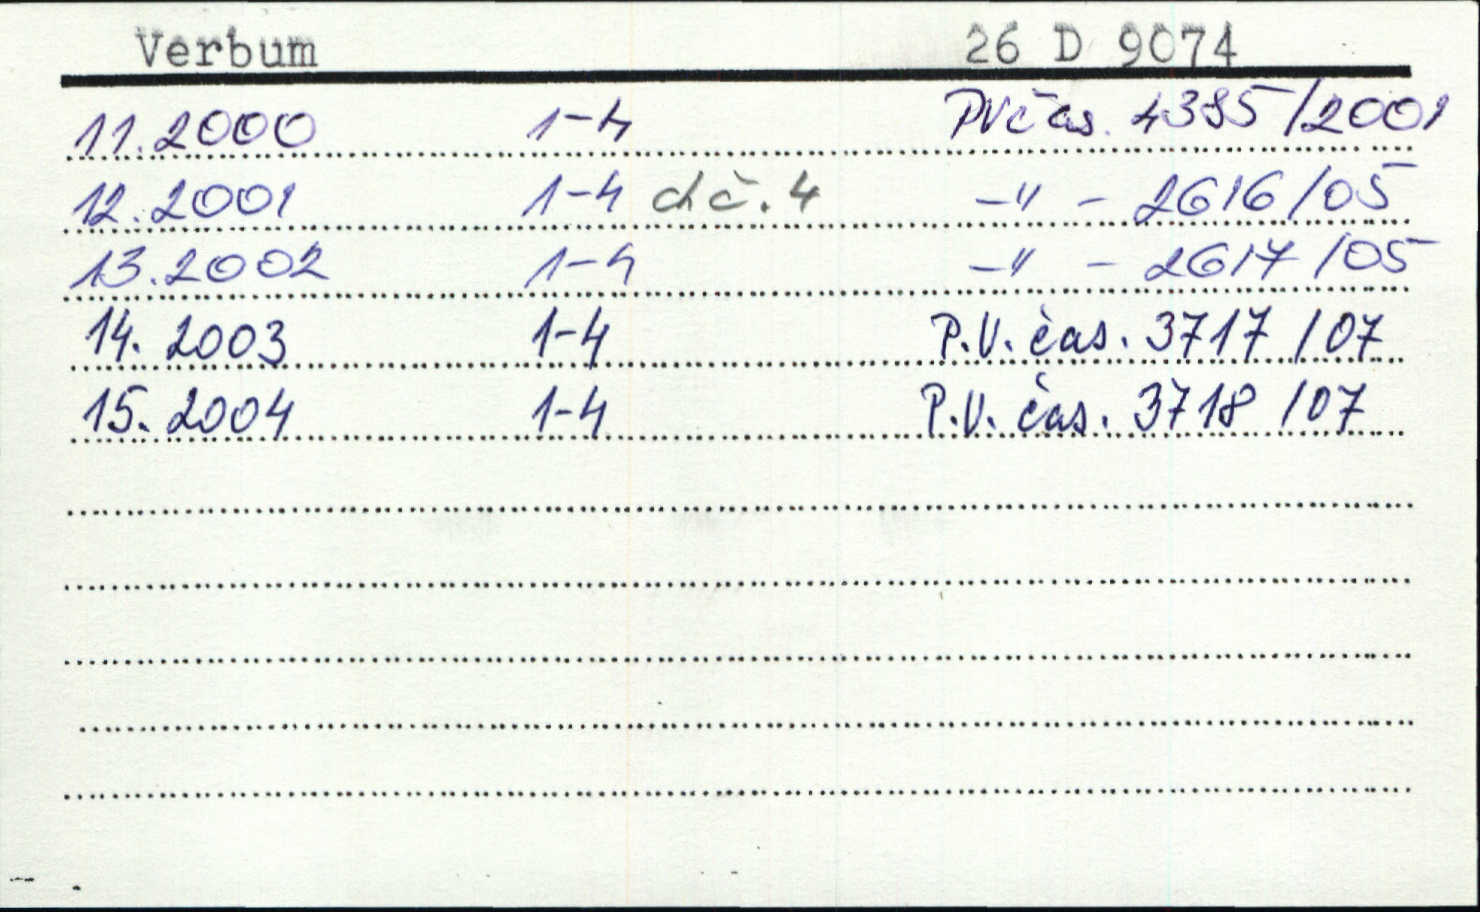 Verbum 26 D 9074
11.2000 1-4 PVčas. 4385/2001
12.2001 1-4 ch č. 4 -"- 2616/05
13.2002 1-4 -"- 2617/05
14. 2003 1-4 P.V. čas. 3717/07
15. 2004 1-4 P.V. čas. 3718/07